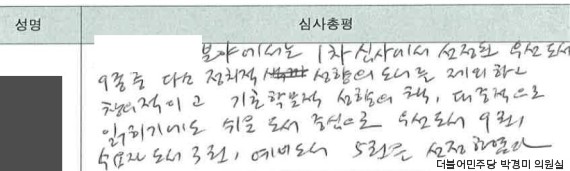 성명 심사총평
분야에서는 1차 심사에서 선정된 우선도서
9종 중 다소 정치적 성향의 도서를 제외하고
창의적이고 기초학문적 성향의 책, 대중적으로
읽히기에도 쉬운 도서 중심으로 우선도서 9권,
수요자 도서 3권, 예비도서 5권을 선정하였다
더불어민주당 박경미 의원실